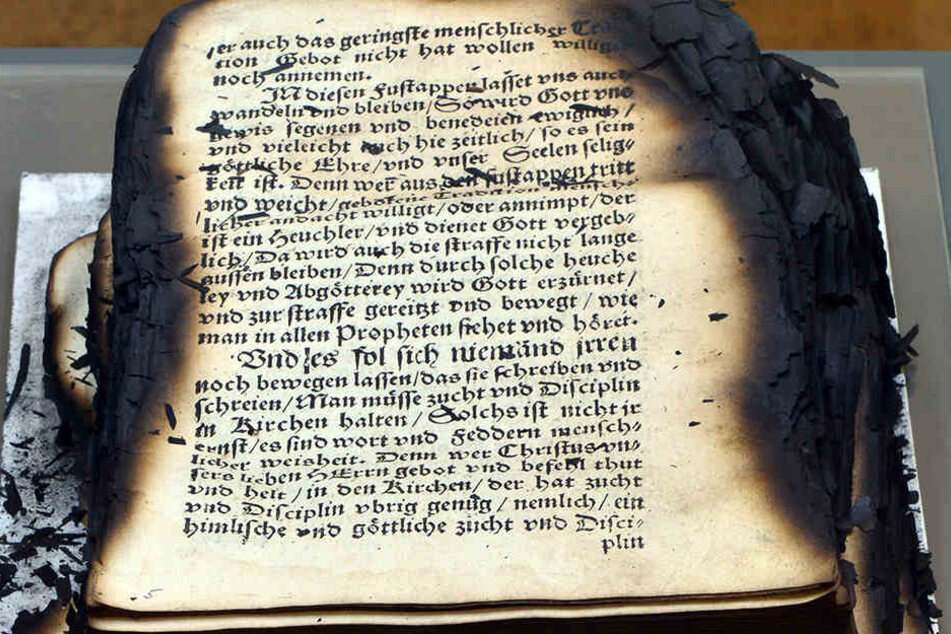 er auch das geringste menschlicher Tra-
tion Gebot nicht hat wollen willig
noch annemen.
In diesen Fustappen lasset vns auch
wandeln vnd bleiben/ So wird Gott vns
gewis segenen vnd benedeien ewiglich/
vnd vieleicht auch hie zeitlich/ so es sein
göttliche Ehre/ vnd vnser Seelen selig-
keit ist. Denn wer aus den fustappen tritt
vnd weicht/ gebotene Tradition mensch-
licher andacht willigt/ oder annimpt/ der
ist ein Heuchler/ vnd dienet Gott vergeb-
lich/ Da wird auch die straffe nicht lange
aussen bleiben/ Denn durch solche heuche
ley vnd Abgötterey wird Gott erzürnet/
vnd zur straffe gereitzt vnd bewegt/ wie
man in allen Propheten siehet vnd höret.
Vnd es sol sich niemand jrren
noch bewegen lassen/ das sie schreiben vnd
schreien/ Man müsse zucht vnd Disciplin
in Kirchen halten/ Solchs ist nicht jr
ernst/ es sind wort vnd Feddern mensch-
licher weisheit. Denn wer Christus vn-
sers lieben HErrn gebot vnd befehl thut
vnd helt/ in den Kirchen/ der hat zucht
vnd Disciplin vbrig genug/ nemlich/ ein
himlische vnd göttliche zucht vnd Disci-
plin
5